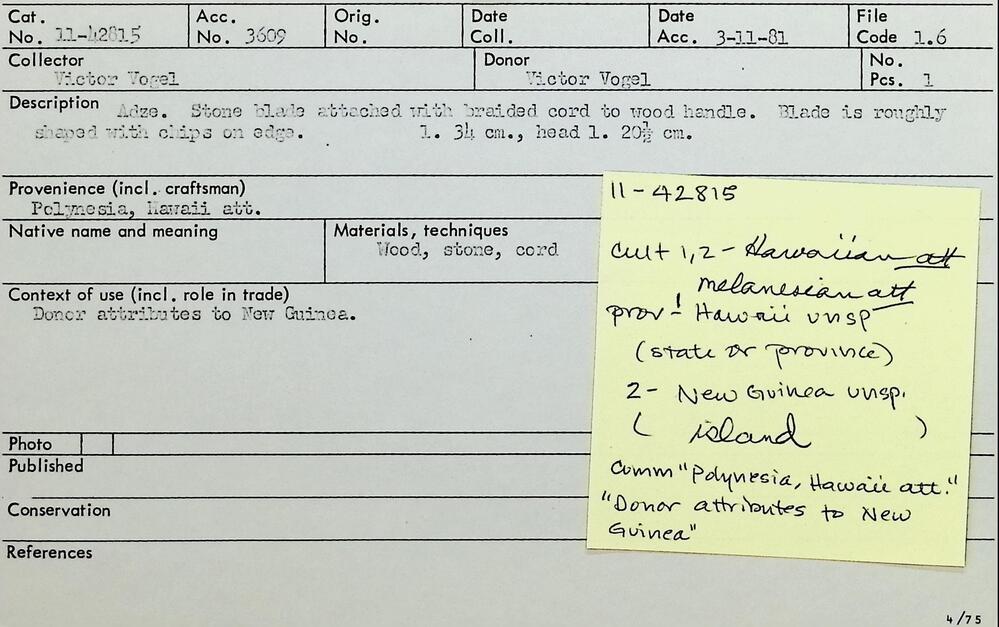 Cat. No. 11-42815
Acc. No. 3609
Orig. No.
Date Coll.
Date Acc. 3-11-81
File Code 1.6
Collector
Victor Vogel
Donor
Victor Vogel
No. Pcs. 1
Description Adze. Stone blade attached with braided cord to wood handle. Blade is roughly
shaped with chips on edge. l. 34 cm., head l. 20½ cm.
Provenience (incl. craftsman)
Polynesia, Hawaii att.
Native name and meaning
Materials, techniques
Wood, stone, cord
Context of use (incl. role in trade)
Donor attributes to New Guinea.
Photo
Published
Conservation
References
4/75
11-42815
Cult 1,2 - Hawaiian att
melanesian att
prov 1 - Hawaii unsp
(state or province)
2 - New Guinea unsp.
( island )
Comm "Polynesia, Hawaii att."
"Donor attributes to New
Guinea"